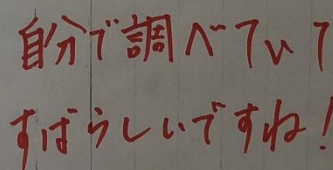 自分で調べていて
すばらしいですね!